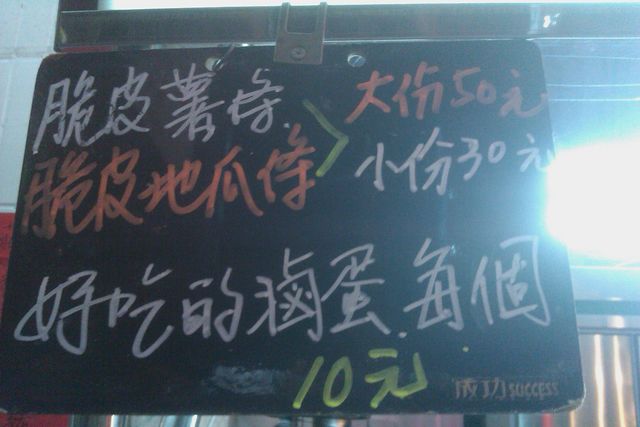 脆皮薯條 大份50元
脆皮地瓜條 小份30元
好吃的滷蛋.每個
10元
成功SUCCESS